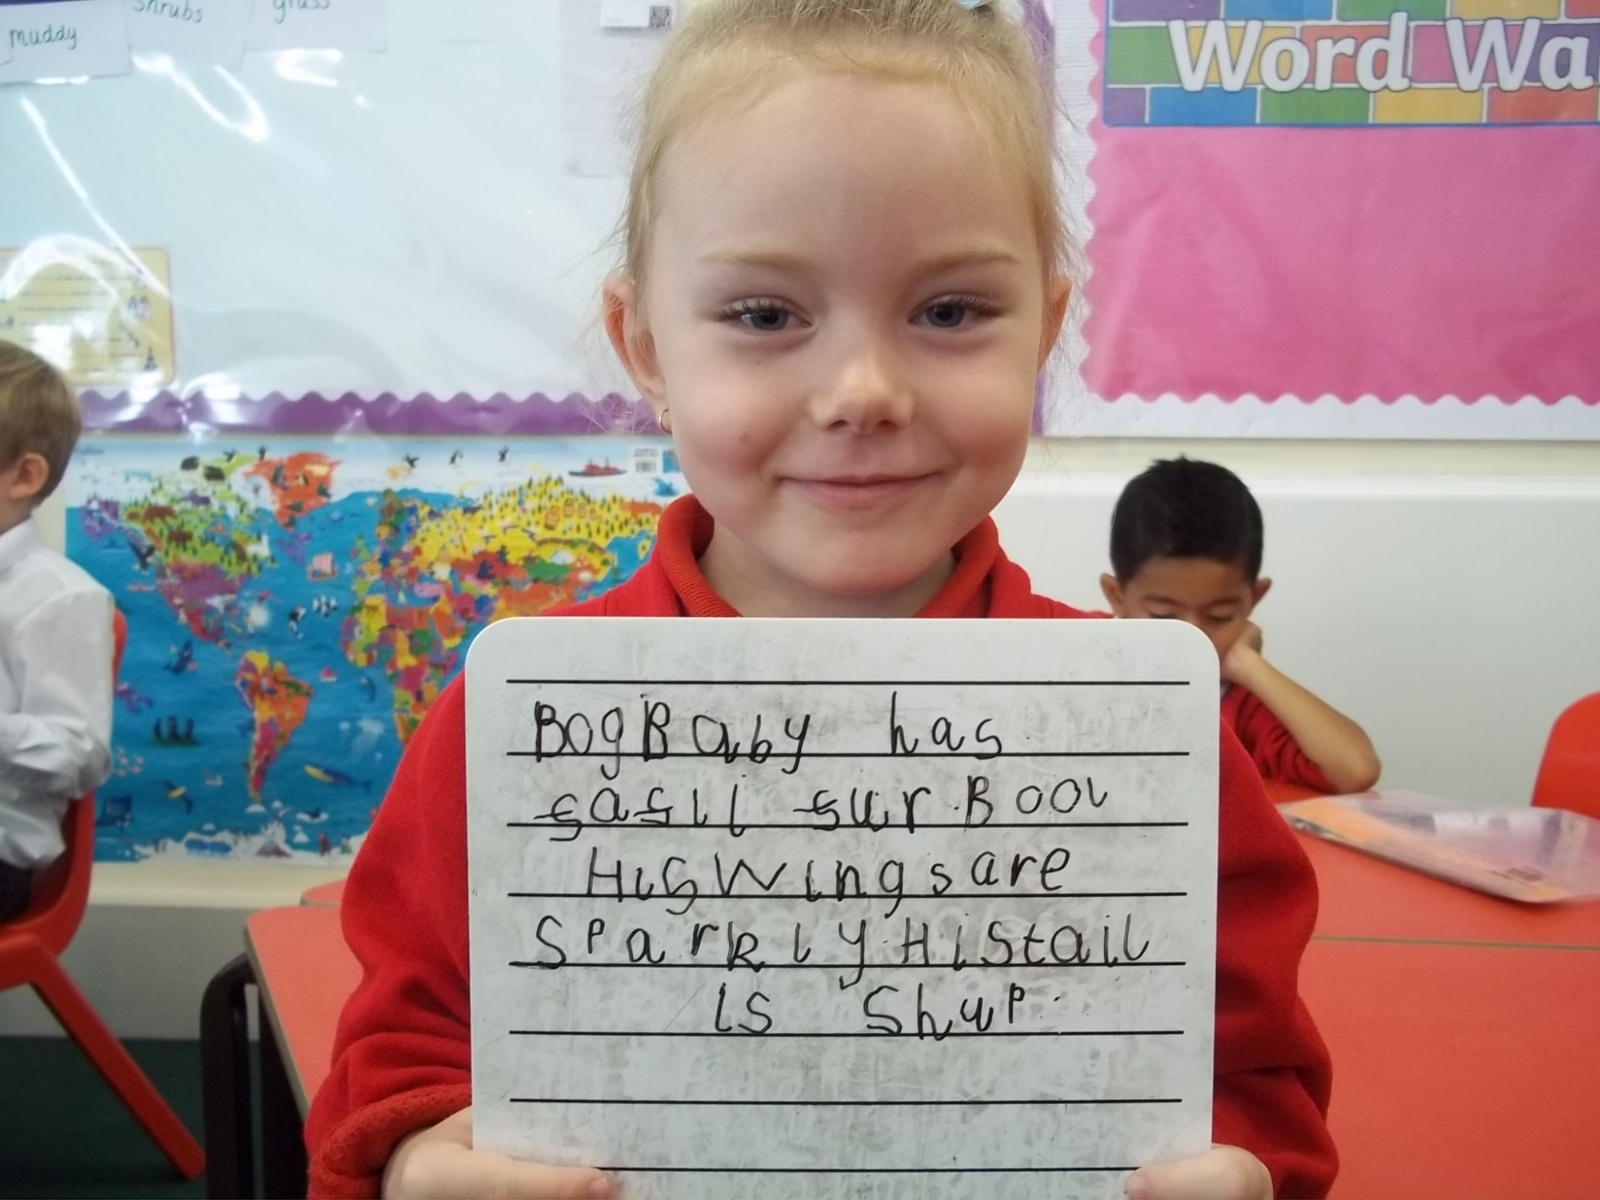 muddy
shrubs
grass
Word Wa
BogBaby has
sasll surBool
HisWingsare
SParklyHiStail
is ShuP.